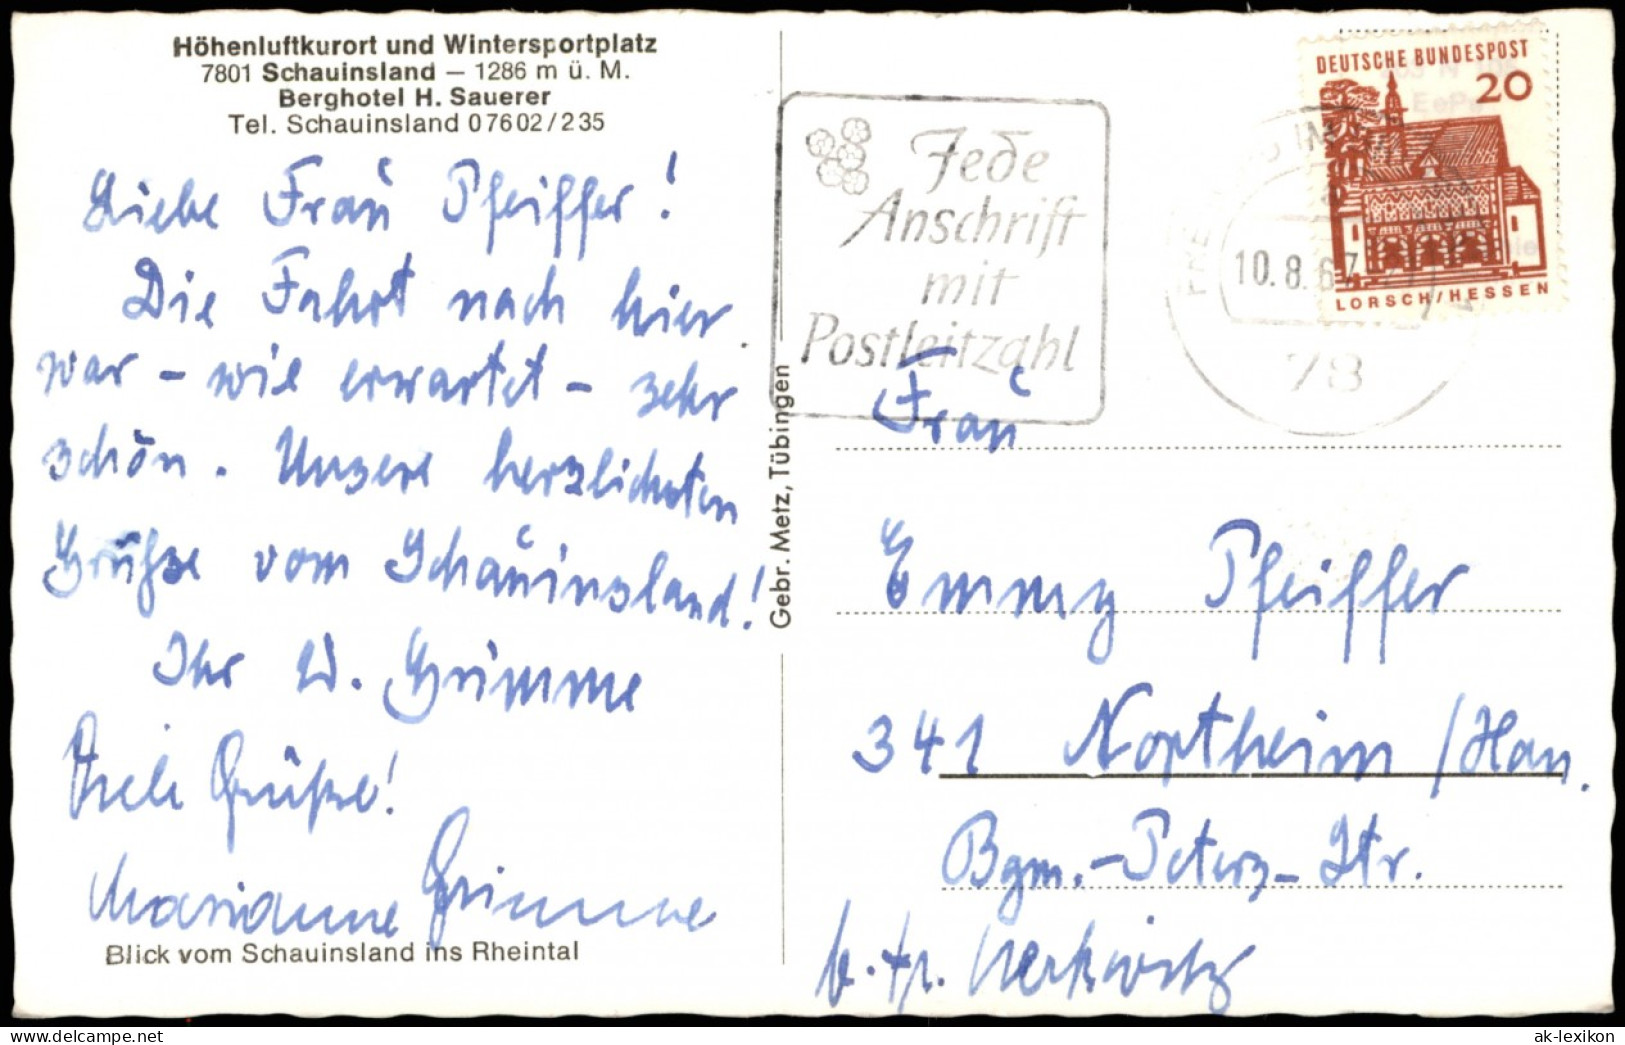 Höhenluftkurort und Wintersportplatz
7801 Schauinsland — 1286 m ü. M.
Berghotel H. Sauerer
Tel. Schauinsland 07602/235
Liebe Frau Pfeiffer!
Die Fahrt nach hier
war - wie erwartet - sehr
schön. Unsere herzlichsten
Grüße vom Schauinsland!
Ihr W. Grimme
Viele Grüße!
Marianne Grimme
Blick vom Schauinsland ins Rheintal
Gebr. Metz, Tübingen
Jede
Anschrift
mit
Postleitzahl
10.8.67
78
DEUTSCHE BUNDESPOST
20
LORSCH/HESSEN
Frau
Emmy Pfeiffer
341 Northeim/Han.
Bgm.-Peters-Str.
b. Merkwitz
ak-lexikon